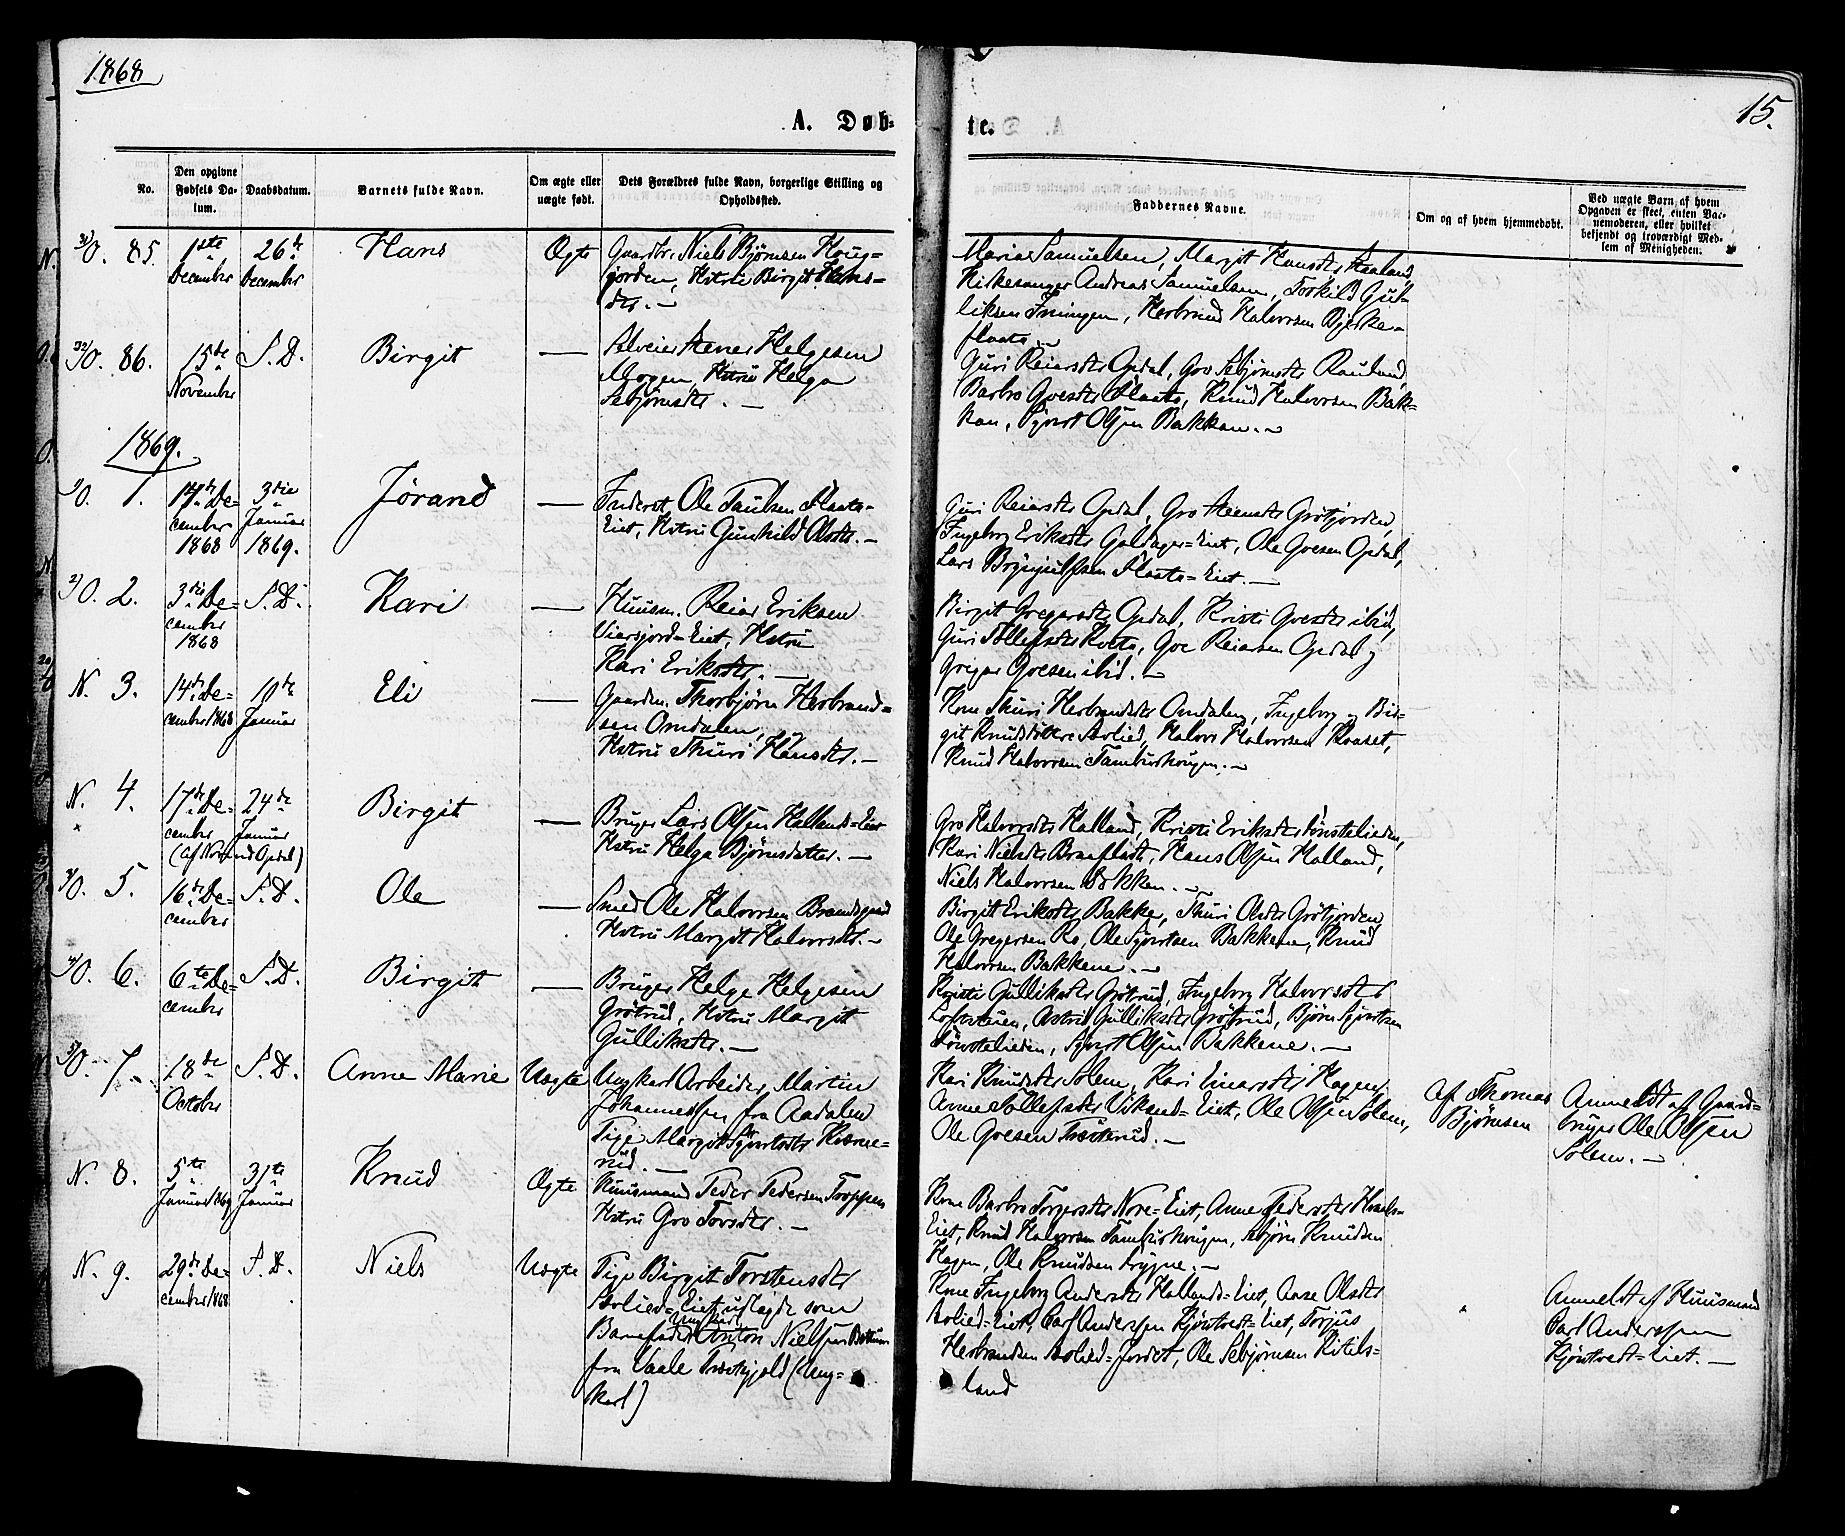 1868
15.
A. Døb-
te.
No.
Den opgivne Fødsels Da-tum.
Daabsdatum.
Barnets fulde Navn.
Om ægte eller uægte født.
Dets Forældres fulde Navn, borgerlige Stilling og Opholdssted.
Faddernes Navne.
Om og af hvem hjemmedøbt.
Ved uægte Barn, af hvem Opgaven er skeet, enten Bar-nemoderen, eller hvilket bekjendt og troværdigt Med-lem af Menigheden.
N. 31/O. 85. 1ste December
26de December
Hans
Ægte
Gaardbr. Niels Bjørnsen Houg-
jorden, Hstru Birgit Hans-
dtr. —
Maria Samuelsen, Margit Hansdtr
Kirkesanger Andreas Samuelsen, Torkild Gul-
liksen, Herbrand Halvorsen Bjerke-
flaata. —
32/O. 86. 15de November
S. D.
Birgit
—
Selveier Stener Helgesen
Mogen, Hstru Helga
Sebjørnsdtr. —
Guri Reiarsdtr Opdal, Gro Sebjørnsdtr Rauland,
Barbro Goesdtr Flaata, Knud Halvorsen Bak-
kan, Syvert Olsen Bakkan. —
1869.
1/O. 1. 17de De-
cember
1868
3die
Januar
1869.
Jørand
—
Inderst Ole Paulsen Flaata-
Eiet, Hstru Gunhild Olsdtr. —
Guri Reiarsdtr Opdal, Gro Steensdtr Grøtjorden,
Ingeborg Eriksdtr Goldager=Eiet, Ole Goesen Opdal,
Lars Brynjulfsen Flaata=Eiet. —
2/O. 2. 3die De-
cember
1868
S. D.
Kari
—
Huusm. Reiar Eriksen
Viersjord=Eiet, Hstru
Kari Eriksdtr. —
Birgit Gregarsdtr Opdal, Kristi Goesdtr ibid,
Guri Tollefsdtr, Goe Reiarsen Opdal og
Gregar Goesen ibid. —
N. 3. 14de De-
cember 1868
10de
Januar
Eli
—
Gaardm. Thorbjørn Herbrand-
sen Omdalen,
Hstru Thuri Hansdtr. —
Kone Thuri Herbrandsdtr Omdalen, Ingeborg og Bir-
git Knudsdøttre Aslied, Halvor Halvorsen Raaset,
Knud Halvorsen Tamburhougen. —
N. 4. 17de De-
cember
24de
Januar
(af Nore nd Opdal)
Birgit
—
Bruger Lars Olsen Hallands=Eiet
Hstru Helga Bjørnsdatter. —
Gro Halvorsdtr Halland, Kristi Eriksdtr Tønstelieden,
Kari Nielsdtr, Hans Olsen Halland,
Niels Halvorsen Bakken. —
3/O. 5. 16de De-
cember
S. D.
Ole
—
Smed Ole Halvorsen
Hstru Margit Halvorsdtr. —
Birgit Eriksdtr Bakke, Thuri Olsdtr Grøtjorden,
Ole Gregersen Ro, Ole Syvertsen Bakkene, Knud
Halvorsen Bakkene. —
4/O. 6. 6te De-
cember
S. D.
Birgit
—
Bruger Helge Helgesen
Grøtrud, Hstru Margit
Gulliksdtr. —
Kristi Gulliksdtr Grøtrud, Ingeborg Halvorsdtr
Loftsteien, Astrid Gulliksdtr Grøtrud, Bjørn Syvertsen
Tønstelieden, Syvert Olsen Bakkene. —
5/O. 7. 18de
October
S. D.
Anne Marie
Uægte
Ungkarl Arbeider Martin
Johannessen fra Aadalen
Pige Margit Syvertsdtr Kværne-
rud. —
Kari Knudsdtr Solem, Kari Einarsdtr Hagen,
Anne Tollefsdtr Viksund=Eiet, Ole Olsen Solem,
Ole Goesen Træterud. —
Af Thomas
Bjørnsen
Anmeldt af Gaard-
bruger Ole Olsen
Solem. —
N. 8. 5te
Januar 1869
31te
Januar
Knud
Ægte
Huusmand Peder Pedersen Troppen
Hstru Gro Tovsdtr. —
Kone Barbro Torgersdtr Nore=Eiet, Anne Pedersdtr
Eiet, Knud Halvorsen Tamburhougen, Asbjørn Knudsen
Hagen, Ole Knudsen. —
N. 9. 29de De-
cember 1868
S. D.
Niels
Uægte
Pige Birgit Torstensdtr
Aslied=Eiet, udlagde som
Barnefader Ungkarl Anton Nielsen
fra Vaale Præstegjeld (Ung-
karl)
Kone Ingeborg Andersdtr Hallands=Eiet, Anne Olsdtr
Aslied=Eiet, Carl Anderssen Kjøntvedt=Eiet, Torjus
Herbrandsen Aslied=Jordet, Ole Sebjørnsen Kitils-
land
Anmeldt af Huusmand
Carl Anderssen
Kjøntvedt=Eiet. —